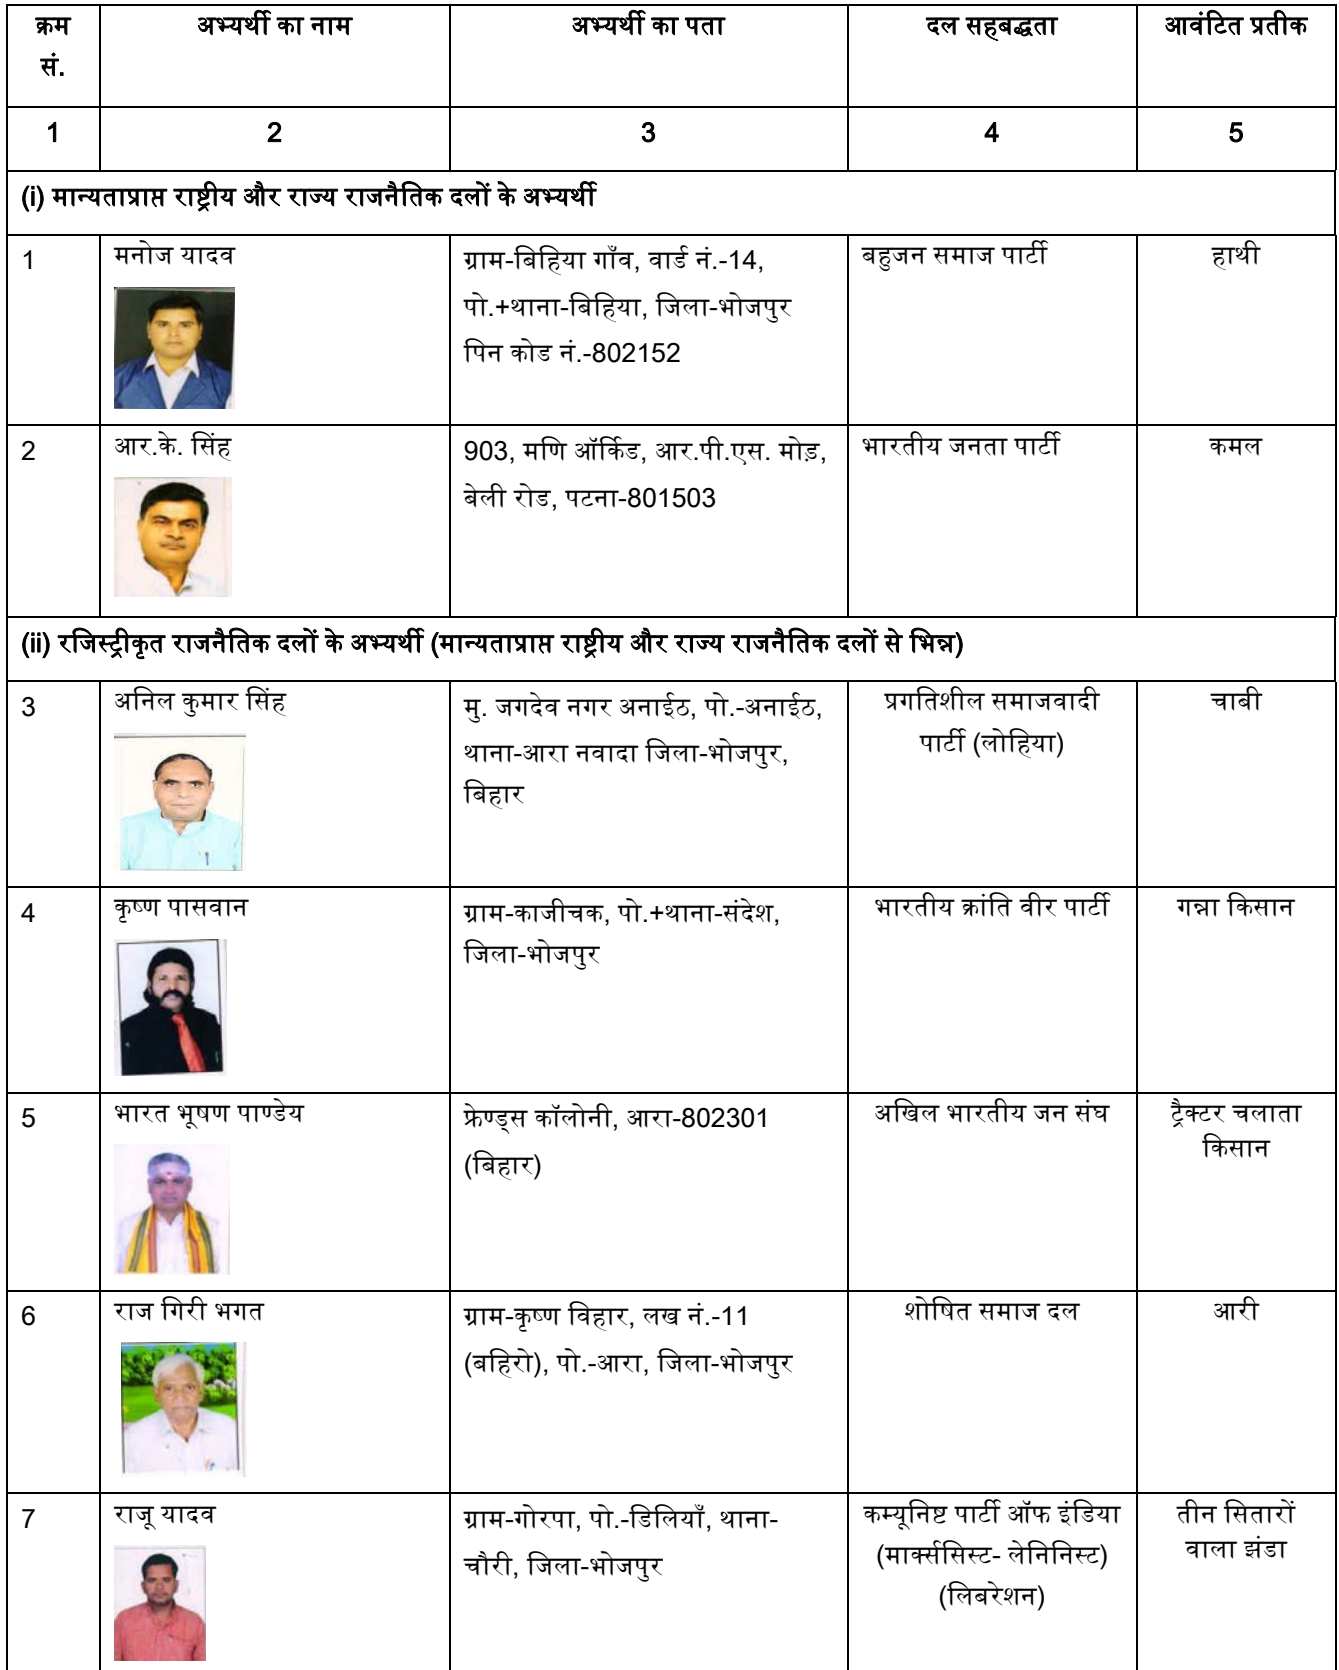 क्रम सं. अभ्यर्थी का नाम अभ्यर्थी का पता दल सहबद्धता आवंटित प्रतीक
1 2 3 4 5
(i) मान्यताप्राप्त राष्ट्रीय और राज्य राजनैतिक दलों के अभ्यर्थी
1 मनोज यादव
ग्राम-बिहिया गाँव, वार्ड नं.-14,
पो.+थाना-बिहिया, जिला-भोजपुर
पिन कोड नं.-802152
बहुजन समाज पार्टी
हाथी
2 आर.के. सिंह
903, मणि ऑर्किड, आर.पी.एस. मोड़,
बेली रोड, पटना-801503
भारतीय जनता पार्टी
कमल
(ii) रजिस्ट्रीकृत राजनैतिक दलों के अभ्यर्थी (मान्यताप्राप्त राष्ट्रीय और राज्य राजनैतिक दलों से भिन्न)
3 अनिल कुमार सिंह
मु. जगदेव नगर अनाईठ, पो.-अनाईठ,
थाना-आरा नवादा जिला-भोजपुर,
बिहार
प्रगतिशील समाजवादी
पार्टी (लोहिया)
चाबी
4 कृष्ण पासवान
ग्राम-काजीचक, पो.+थाना-संदेश,
जिला-भोजपुर
भारतीय क्रांति वीर पार्टी
गन्ना किसान
5 भारत भूषण पाण्डेय
फ्रेण्ड्स कॉलोनी, आरा-802301
(बिहार)
अखिल भारतीय जन संघ
ट्रैक्टर चलाता
किसान
6 राज गिरी भगत
ग्राम-कृष्ण विहार, लख नं.-11
(बहिरो), पो.-आरा, जिला-भोजपुर
शोषित समाज दल
आरी
7 राजू यादव
ग्राम-गोरपा, पो.-डिलियाँ, थाना-
चौरी, जिला-भोजपुर
कम्यूनिष्ट पार्टी ऑफ इंडिया
(मार्क्ससिस्ट- लेनिनिस्ट)
(लिबरेशन)
तीन सितारों
वाला झंडा